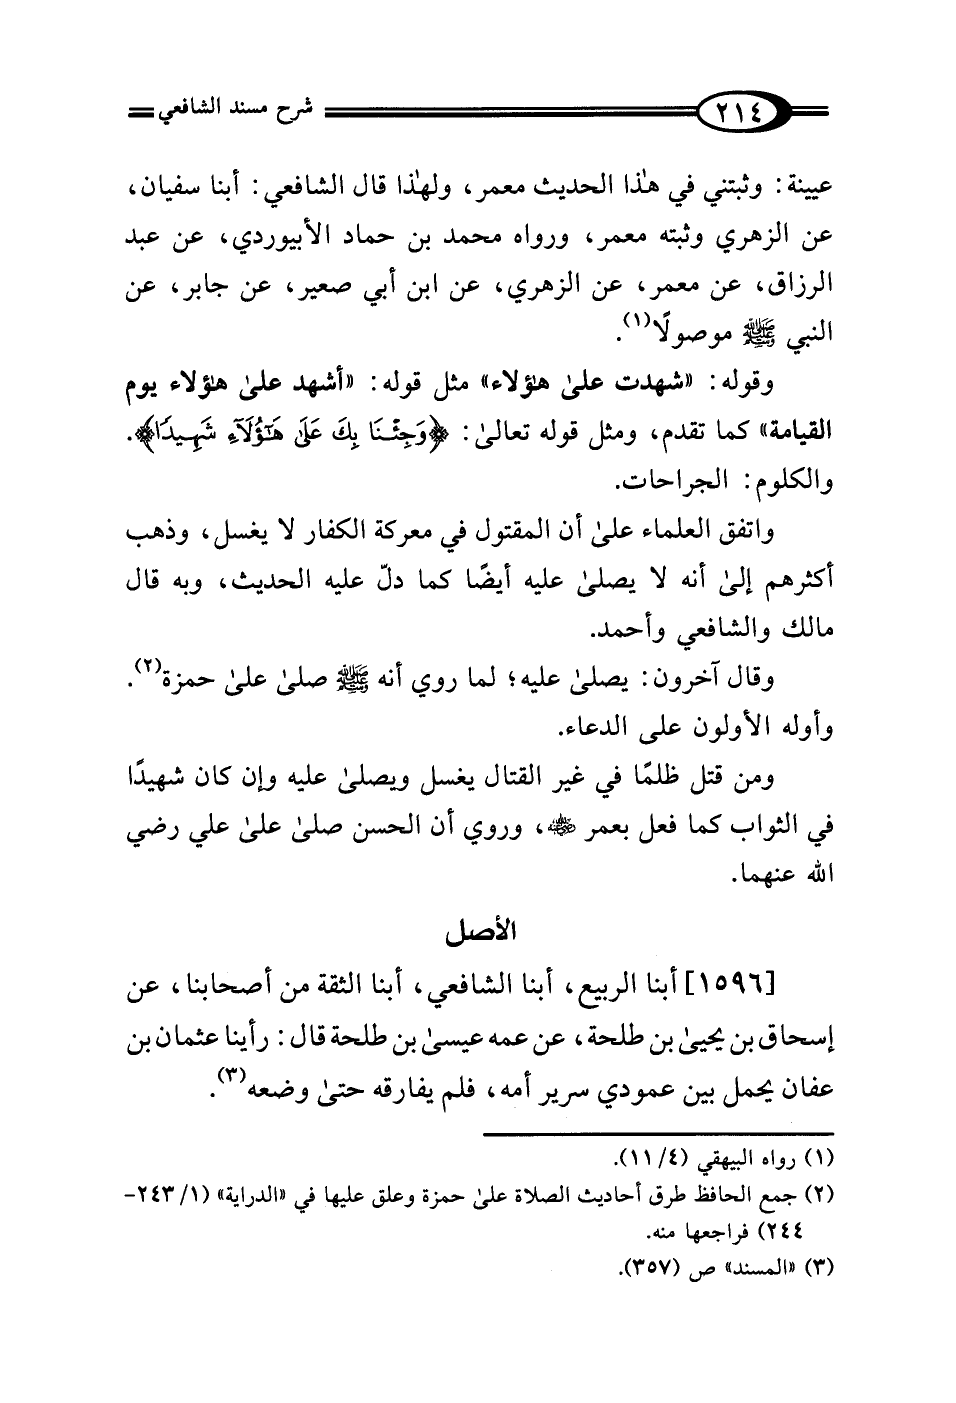 ٢١٤ شرح مسند الشافعي
عيينة: وثبتني في هذا الحديث معمر، ولهذا قال الشافعي: أبنا سفيان،
عن الزهري وثبته معمر، ورواه محمد بن حماد الأبيوردي، عن عبد
الرزاق، عن معمر، عن الزهري، عن ابن أبي صعير، عن جابر، عن
النبي ﷺ موصولًا(١).
وقوله: «شهدت علىٰ هؤلاء» مثل قوله: «أشهد علىٰ هؤلاء يوم
القيامة» كما تقدم، ومثل قوله تعالىٰ: ﴿وَجِئْنَا بِكَ عَلَىٰ هَٰٓؤُلَآءِ شَهِيدًا﴾.
والكلوم: الجراحات.
واتفق العلماء علىٰ أن المقتول في معركة الكفار لا يغسل، وذهب
أكثرهم إلىٰ أنه لا يصلىٰ عليه أيضًا كما دلّ عليه الحديث، وبه قال
مالك والشافعي وأحمد.
وقال آخرون: يصلىٰ عليه؛ لما روي أنه ﷺ صلىٰ علىٰ حمزة(٢).
وأوله الأولون على الدعاء.
ومن قتل ظلمًا في غير القتال يغسل ويصلىٰ عليه وإن كان شهيدًا
في الثواب كما فعل بعمر ﵁، وروي أن الحسن صلىٰ علىٰ علي رضي
الله عنهما.
الأصل
[١٥٩٦] أبنا الربيع، أبنا الشافعي، أبنا الثقة من أصحابنا، عن
إسحاق بن يحيىٰ بن طلحة، عن عمه عيسىٰ بن طلحة قال: رأينا عثمان بن
عفان يحمل بين عمودي سرير أمه، فلم يفارقه حتىٰ وضعه(٣).
(١) رواه البيهقي (٤/ ١١).
(٢) جمع الحافظ طرق أحاديث الصلاة علىٰ حمزة وعلق عليها في «الدراية» (١/ ٢٤٣-
٢٤٤) فراجعها منه.
(٣) «المسند» ص (٣٥٧).